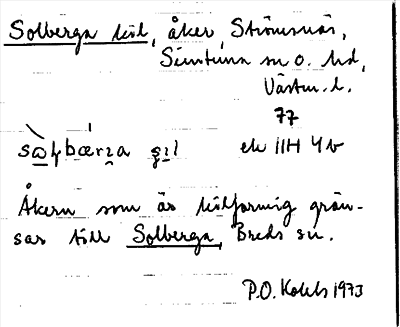 Solberga kil, åker, Strömsnäs,
Simtuna sn o. hd,
Västm. l.
77
ek 11H 4b
Åkern som är kilformig grän-
sar till Solberga, Breds sn.
P.O. 1973